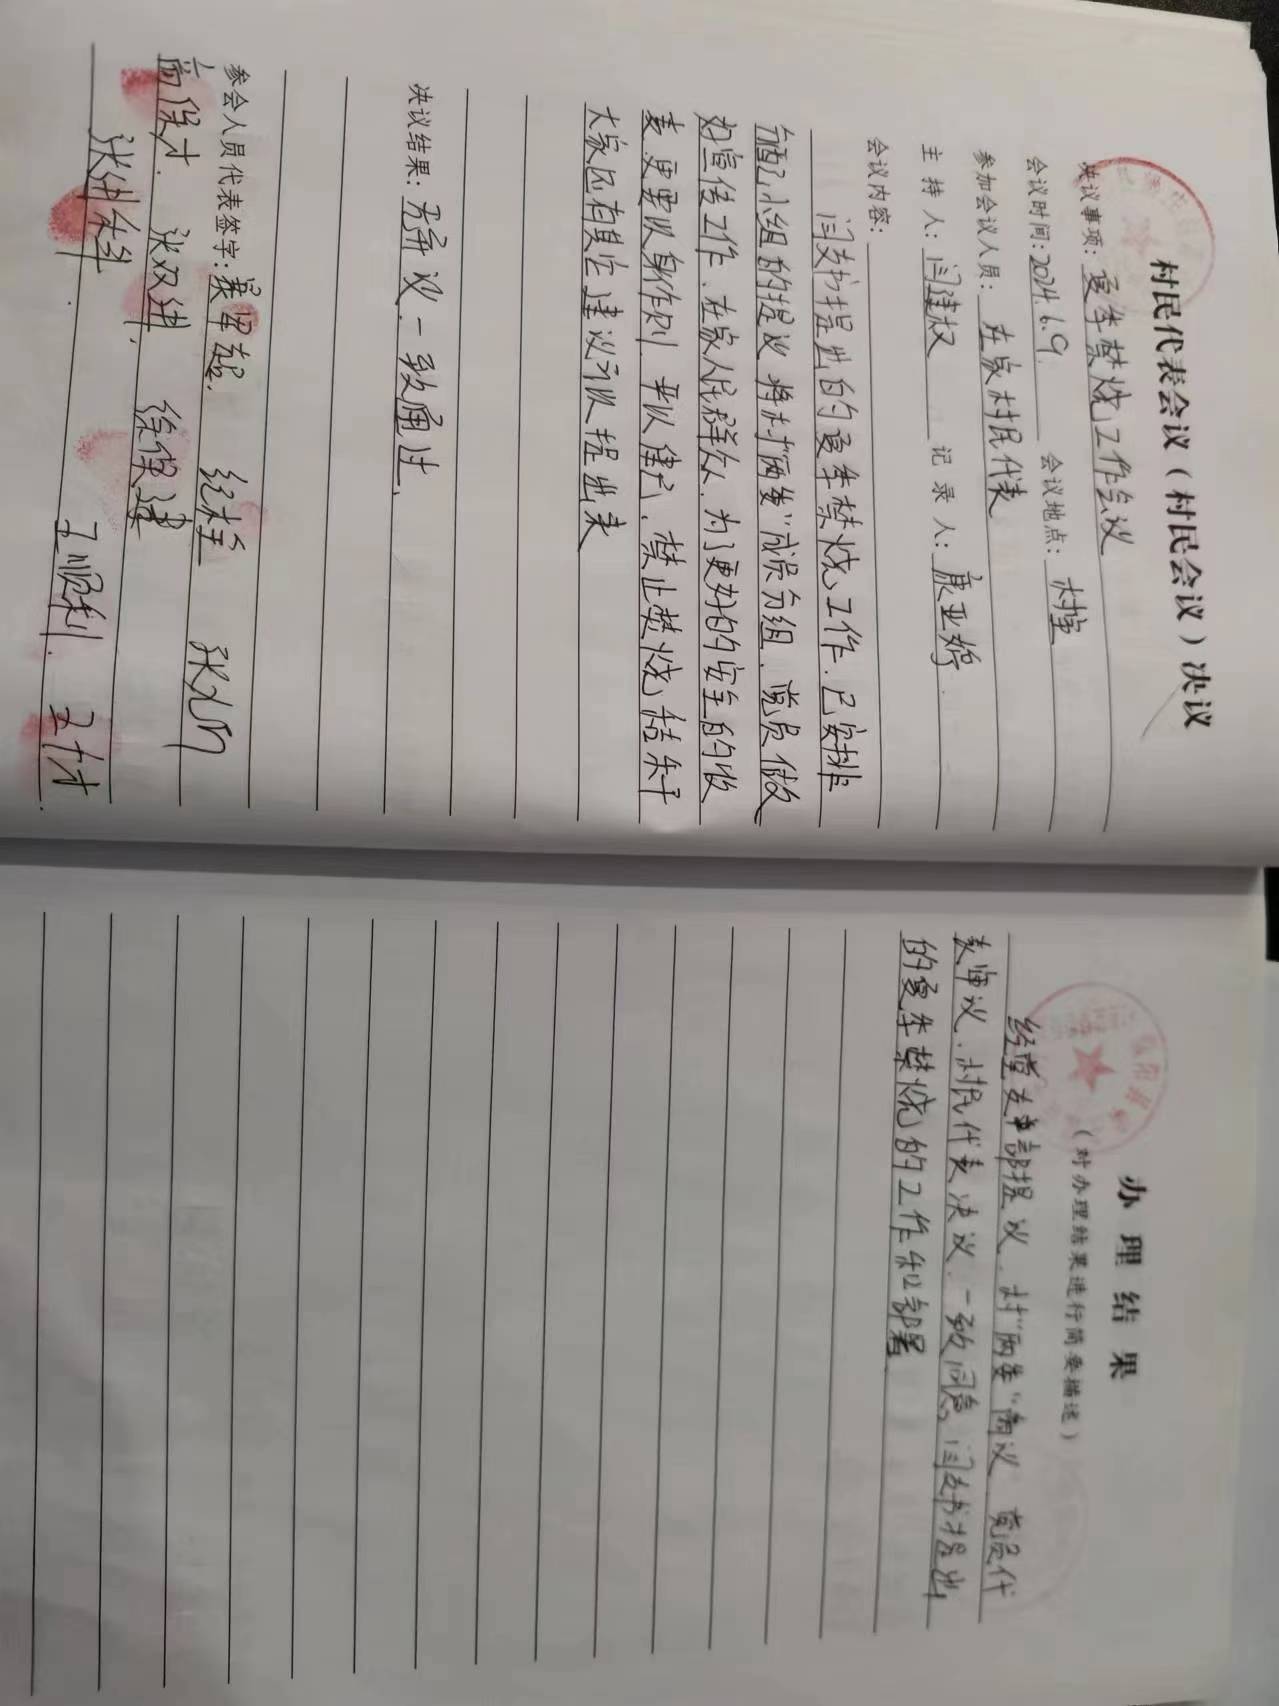 村民代表会议（村民会议）决议
决议事项：夏季禁烧工作会议
会议时间：2024.6.9. 会议地点：村室
参加会议人员：在家村民代表
主持人：闫建权 记录人：康亚婷.
会议内容：
闫支书提出的夏季禁烧工作.已安排
小组的提议.将村"两委"成员分组.党员做
好宣传工作.在家人民群众.为了更好的安全的收
麦.更要以身作则.禁止焚烧秸秆
大家还有其它建议可以提出来
决议结果：一致通过.
参会人员代表签字：
张双进.
王顺利.
办理结果
（对办理结果进行简要描述）
经党支部提议.村"两委"商议.党员代
表审议.村民代表决议.一致同意闫支书提出
的夏季禁烧的工作和部署